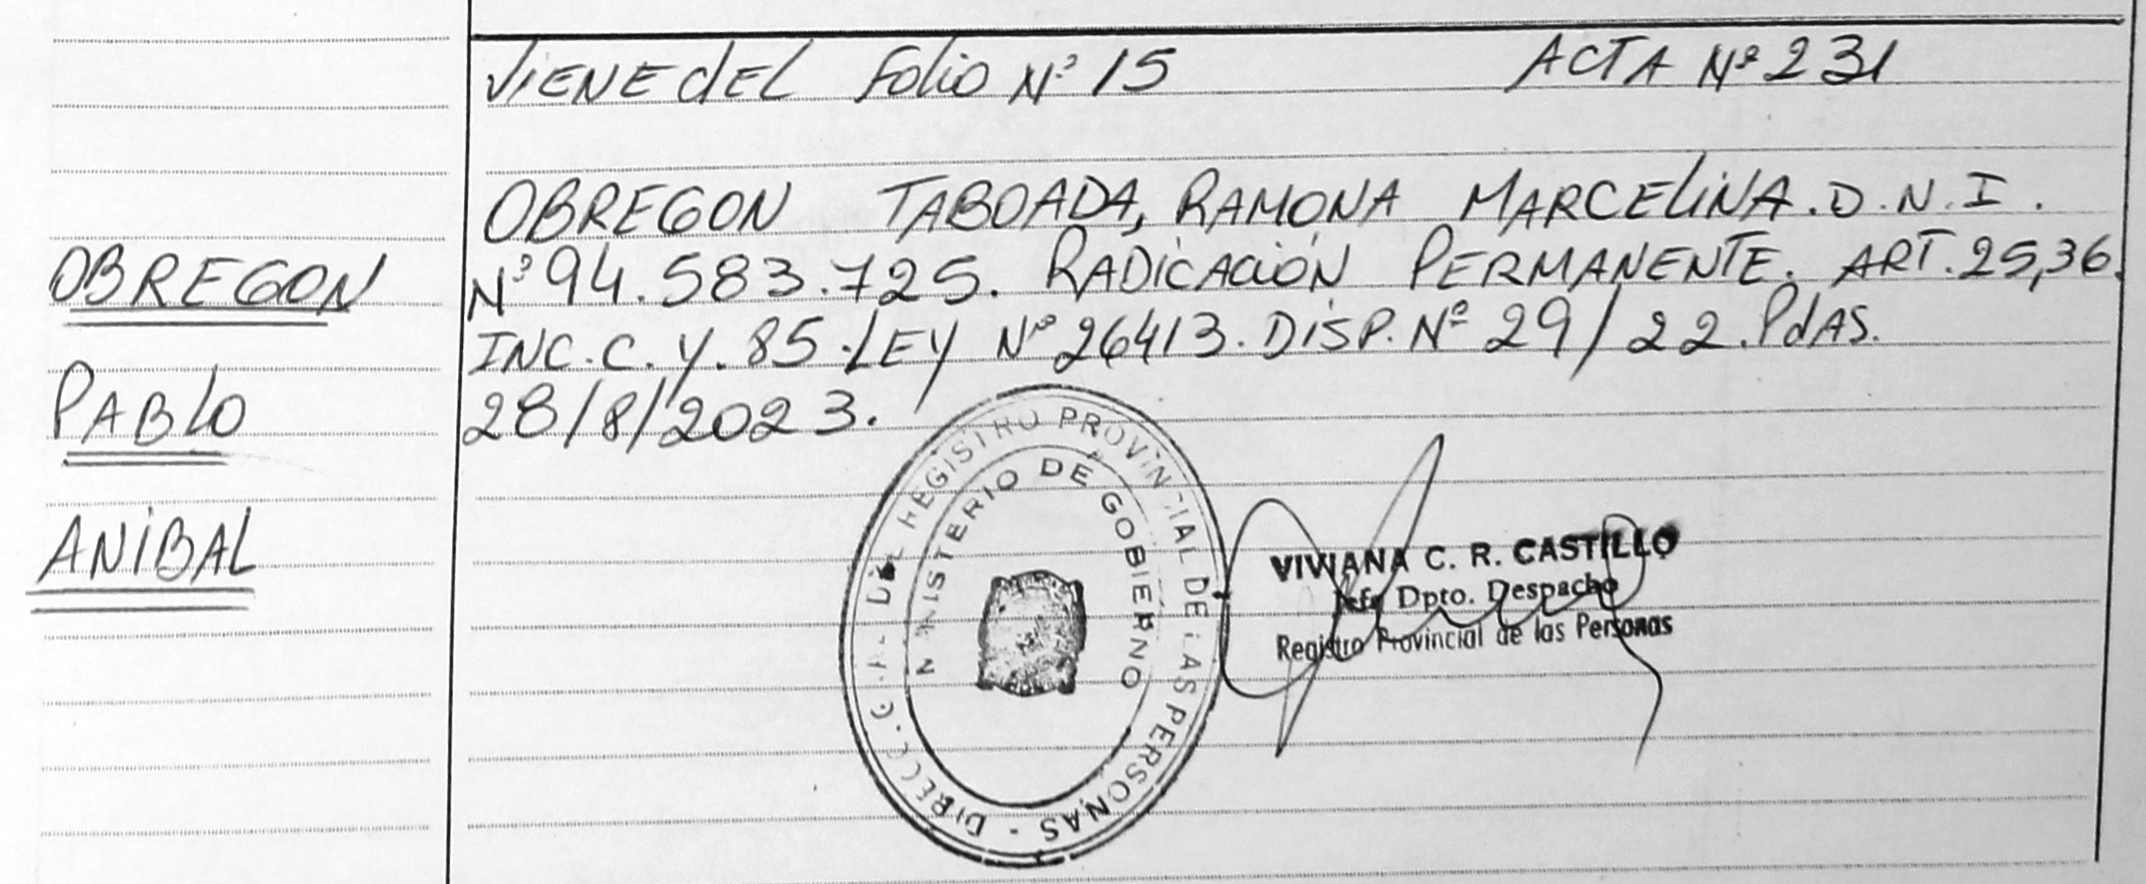 VIENE dEL Folio Nº 15 ACTA Nº 231
OBREGON TABOADA, RAMONA MARCELiNA. D.N.I.
Nº 94.583.725. RADiCACiÓN PERMANENTE. ART. 25,36.
INC.C. Y. 85. LEY Nº 26413. DiSP. Nº 29/22. PdAS.
28/8/2023.
OBREGON
PABLO
ANiBAL
REGISTRO PROVINCIAL DE LAS PERSONAS
MINISTERIO DE GOBIERNO
VIVIANA C. R. CASTILLO
Jefe Dpto. Despacho
Registro Provincial de las Personas